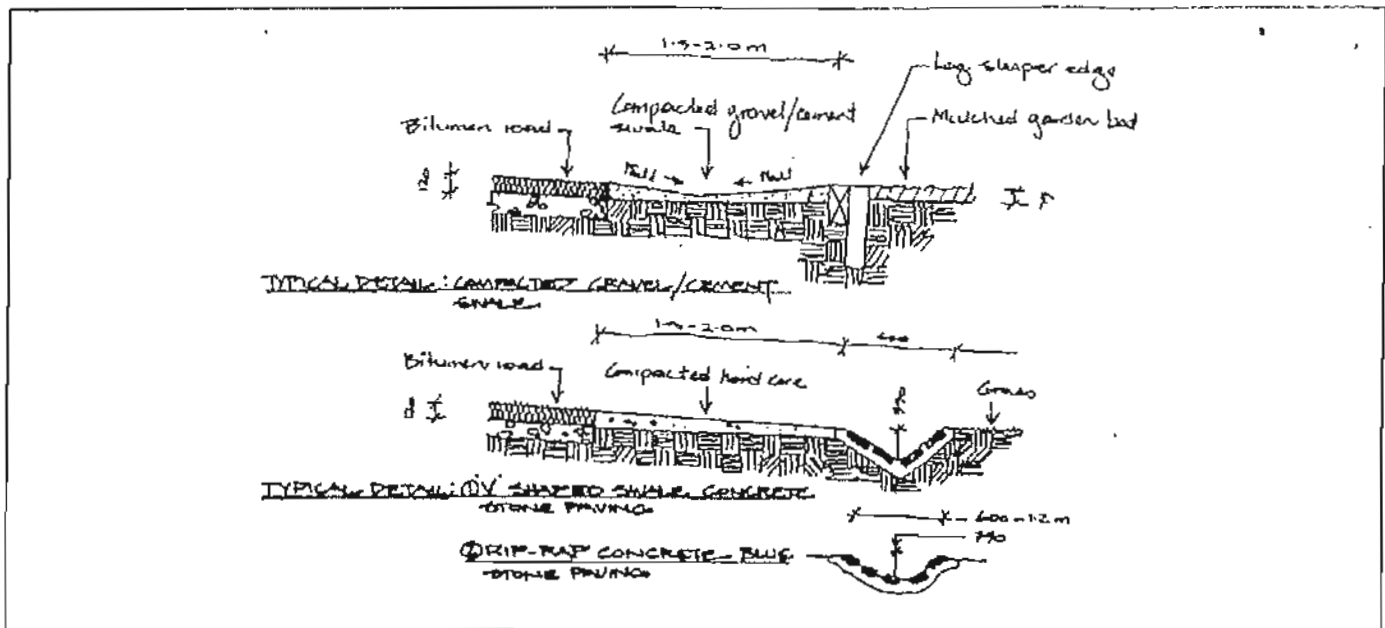 1.5-2.0m
Log sleeper edge
Compacted gravel/cement
swale
Bitumen road
Mulched garden bed
Fall
Fall
TYPICAL DETAIL: COMPACTED GRAVEL/CEMENT
SWALE
1.5-2.0m
600
Bitumen road
Compacted hard core
Grass
TYPICAL DETAIL: ① 'V' SHAPED SWALE CONCRETE
STONE PAVING
600-1.2m
② RIP-RAP CONCRETE BLUE
STONE PAVING